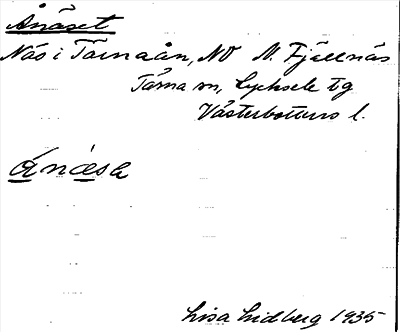 Ånäset
Näs i Tärnaån, NO N. Fjällnäs
Tärna sn, Lycksele tg
Västerbottens l.
ånæsə
Lisa Lidberg 1935